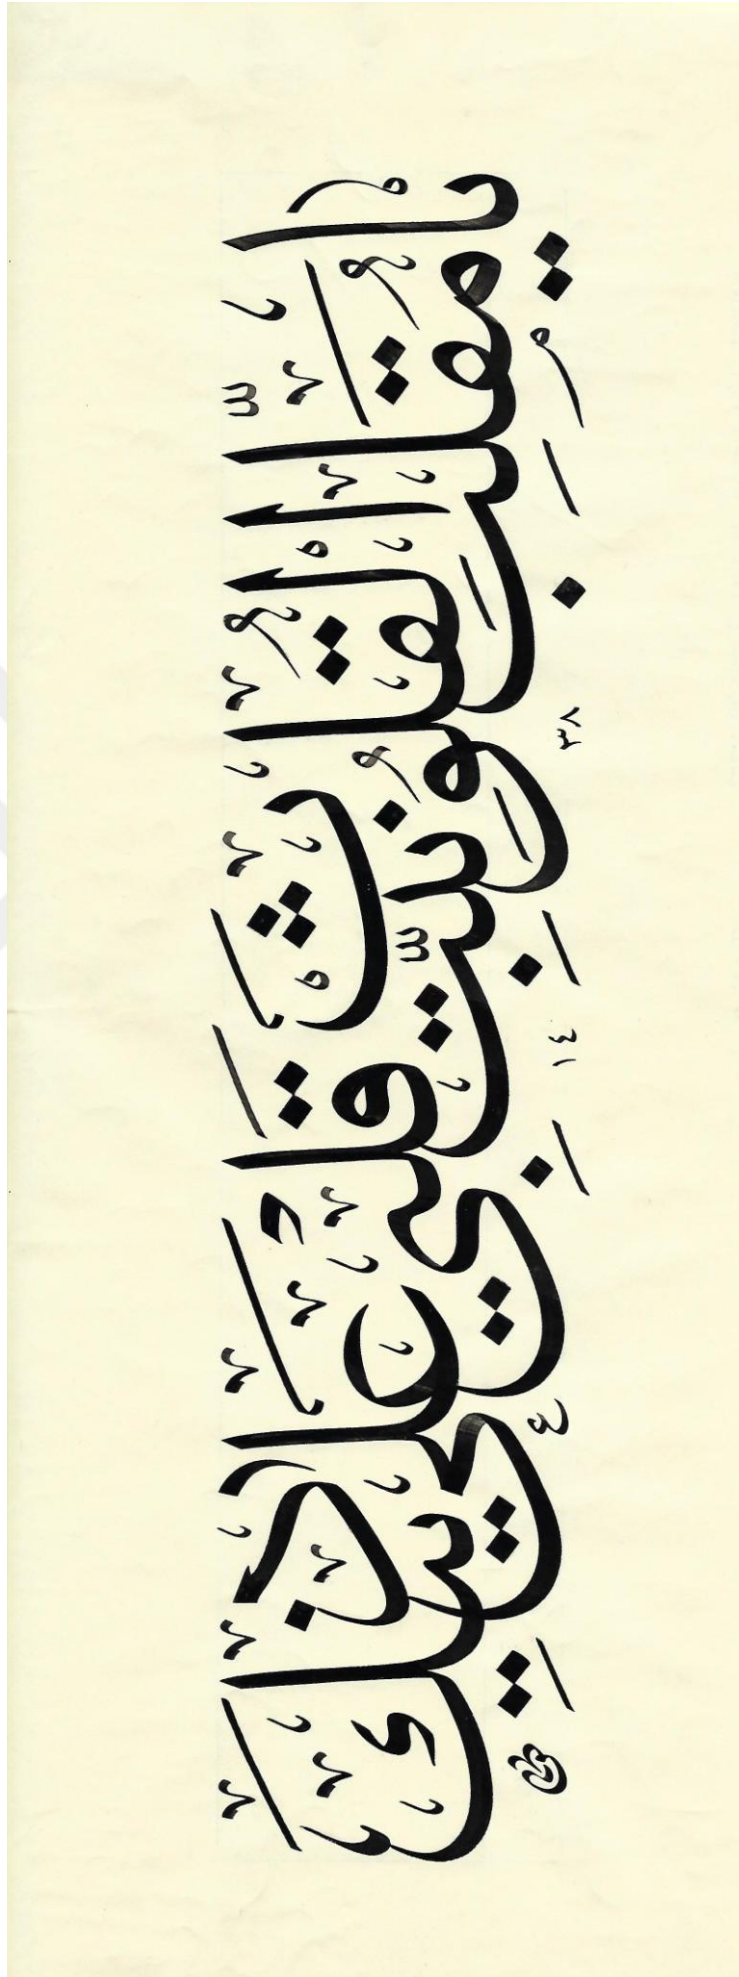 يَا مُقَلِّبَ الْقُلُوبِ ثَبِّتْ قَلْبِي عَلَى دِينِكَ
١٤٣٨